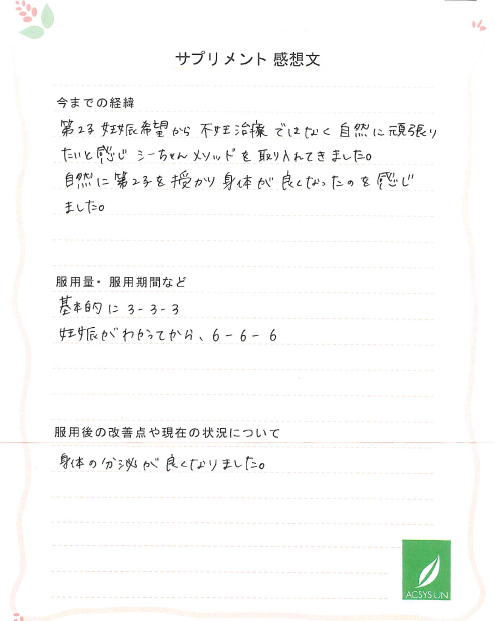 サプリメント 感想文
今までの経緯
第2子妊娠希望から 不妊治療 ではなく 自然に頑張り
たいと感じ シーちゃんメソッドを取り入れてきました。
自然に第2子を授かり 身体が 良くなったのを感じ
ました。
服用量・服用期間など
基本的に 3-3-3
妊娠がわかってから、6-6-6
服用後の改善点や現在の状況について
身体の分泌が良くなりました。
ACSYS UN